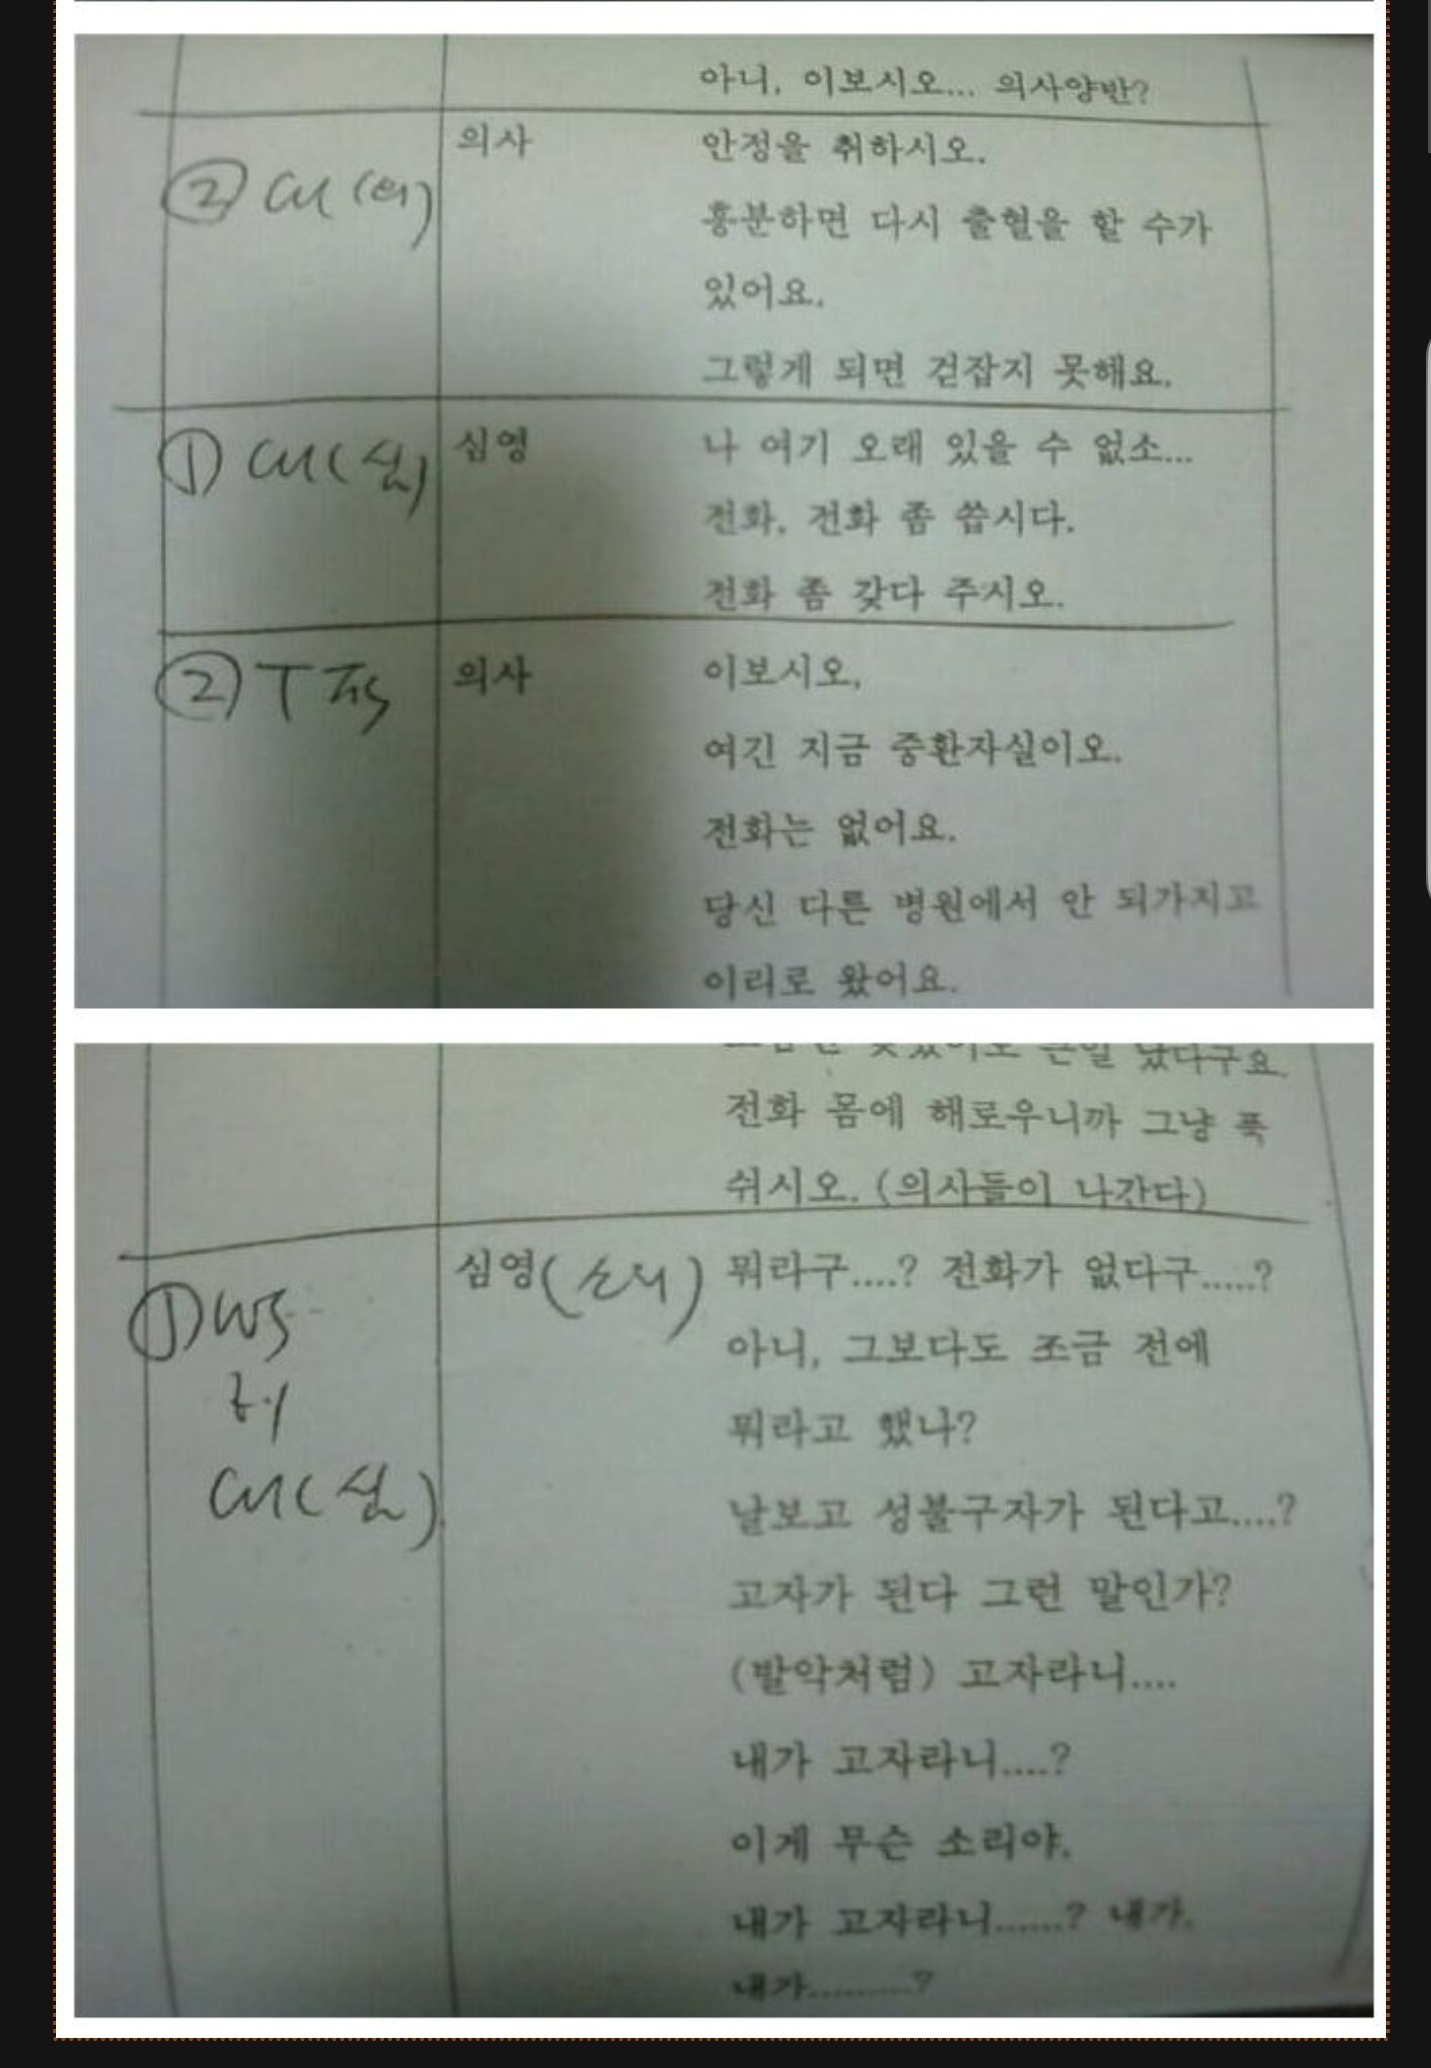 아니, 이보시오... 의사양반?
② CU (의) 의사 안정을 취하시오.
흥분하면 다시 출혈을 할 수가
있어요.
그렇게 되면 걷잡지 못해요.
① CU (심) 심영 나 여기 오래 있을 수 없소...
전화, 전화 좀 씁시다.
전화 좀 갖다 주시오.
② T 의사 이보시오,
여긴 지금 중환자실이오.
전화는 없어요.
당신 다른 병원에서 안 되가지고
이리로 왔어요.
큰일 났다구요.
전화 몸에 해로우니까 그냥 푹
쉬시오. (의사들이 나간다)
① WS 심영 (소리) 뭐라구....? 전화가 없다구.....?
아니, 그보다도 조금 전에
뭐라고 했나?
CU (심) 날보고 성불구자가 된다고....?
고자가 된다 그런 말인가?
(발악처럼) 고자라니....
내가 고자라니....?
이게 무슨 소리야.
내가 고자라니......? 내가.
내가.........?